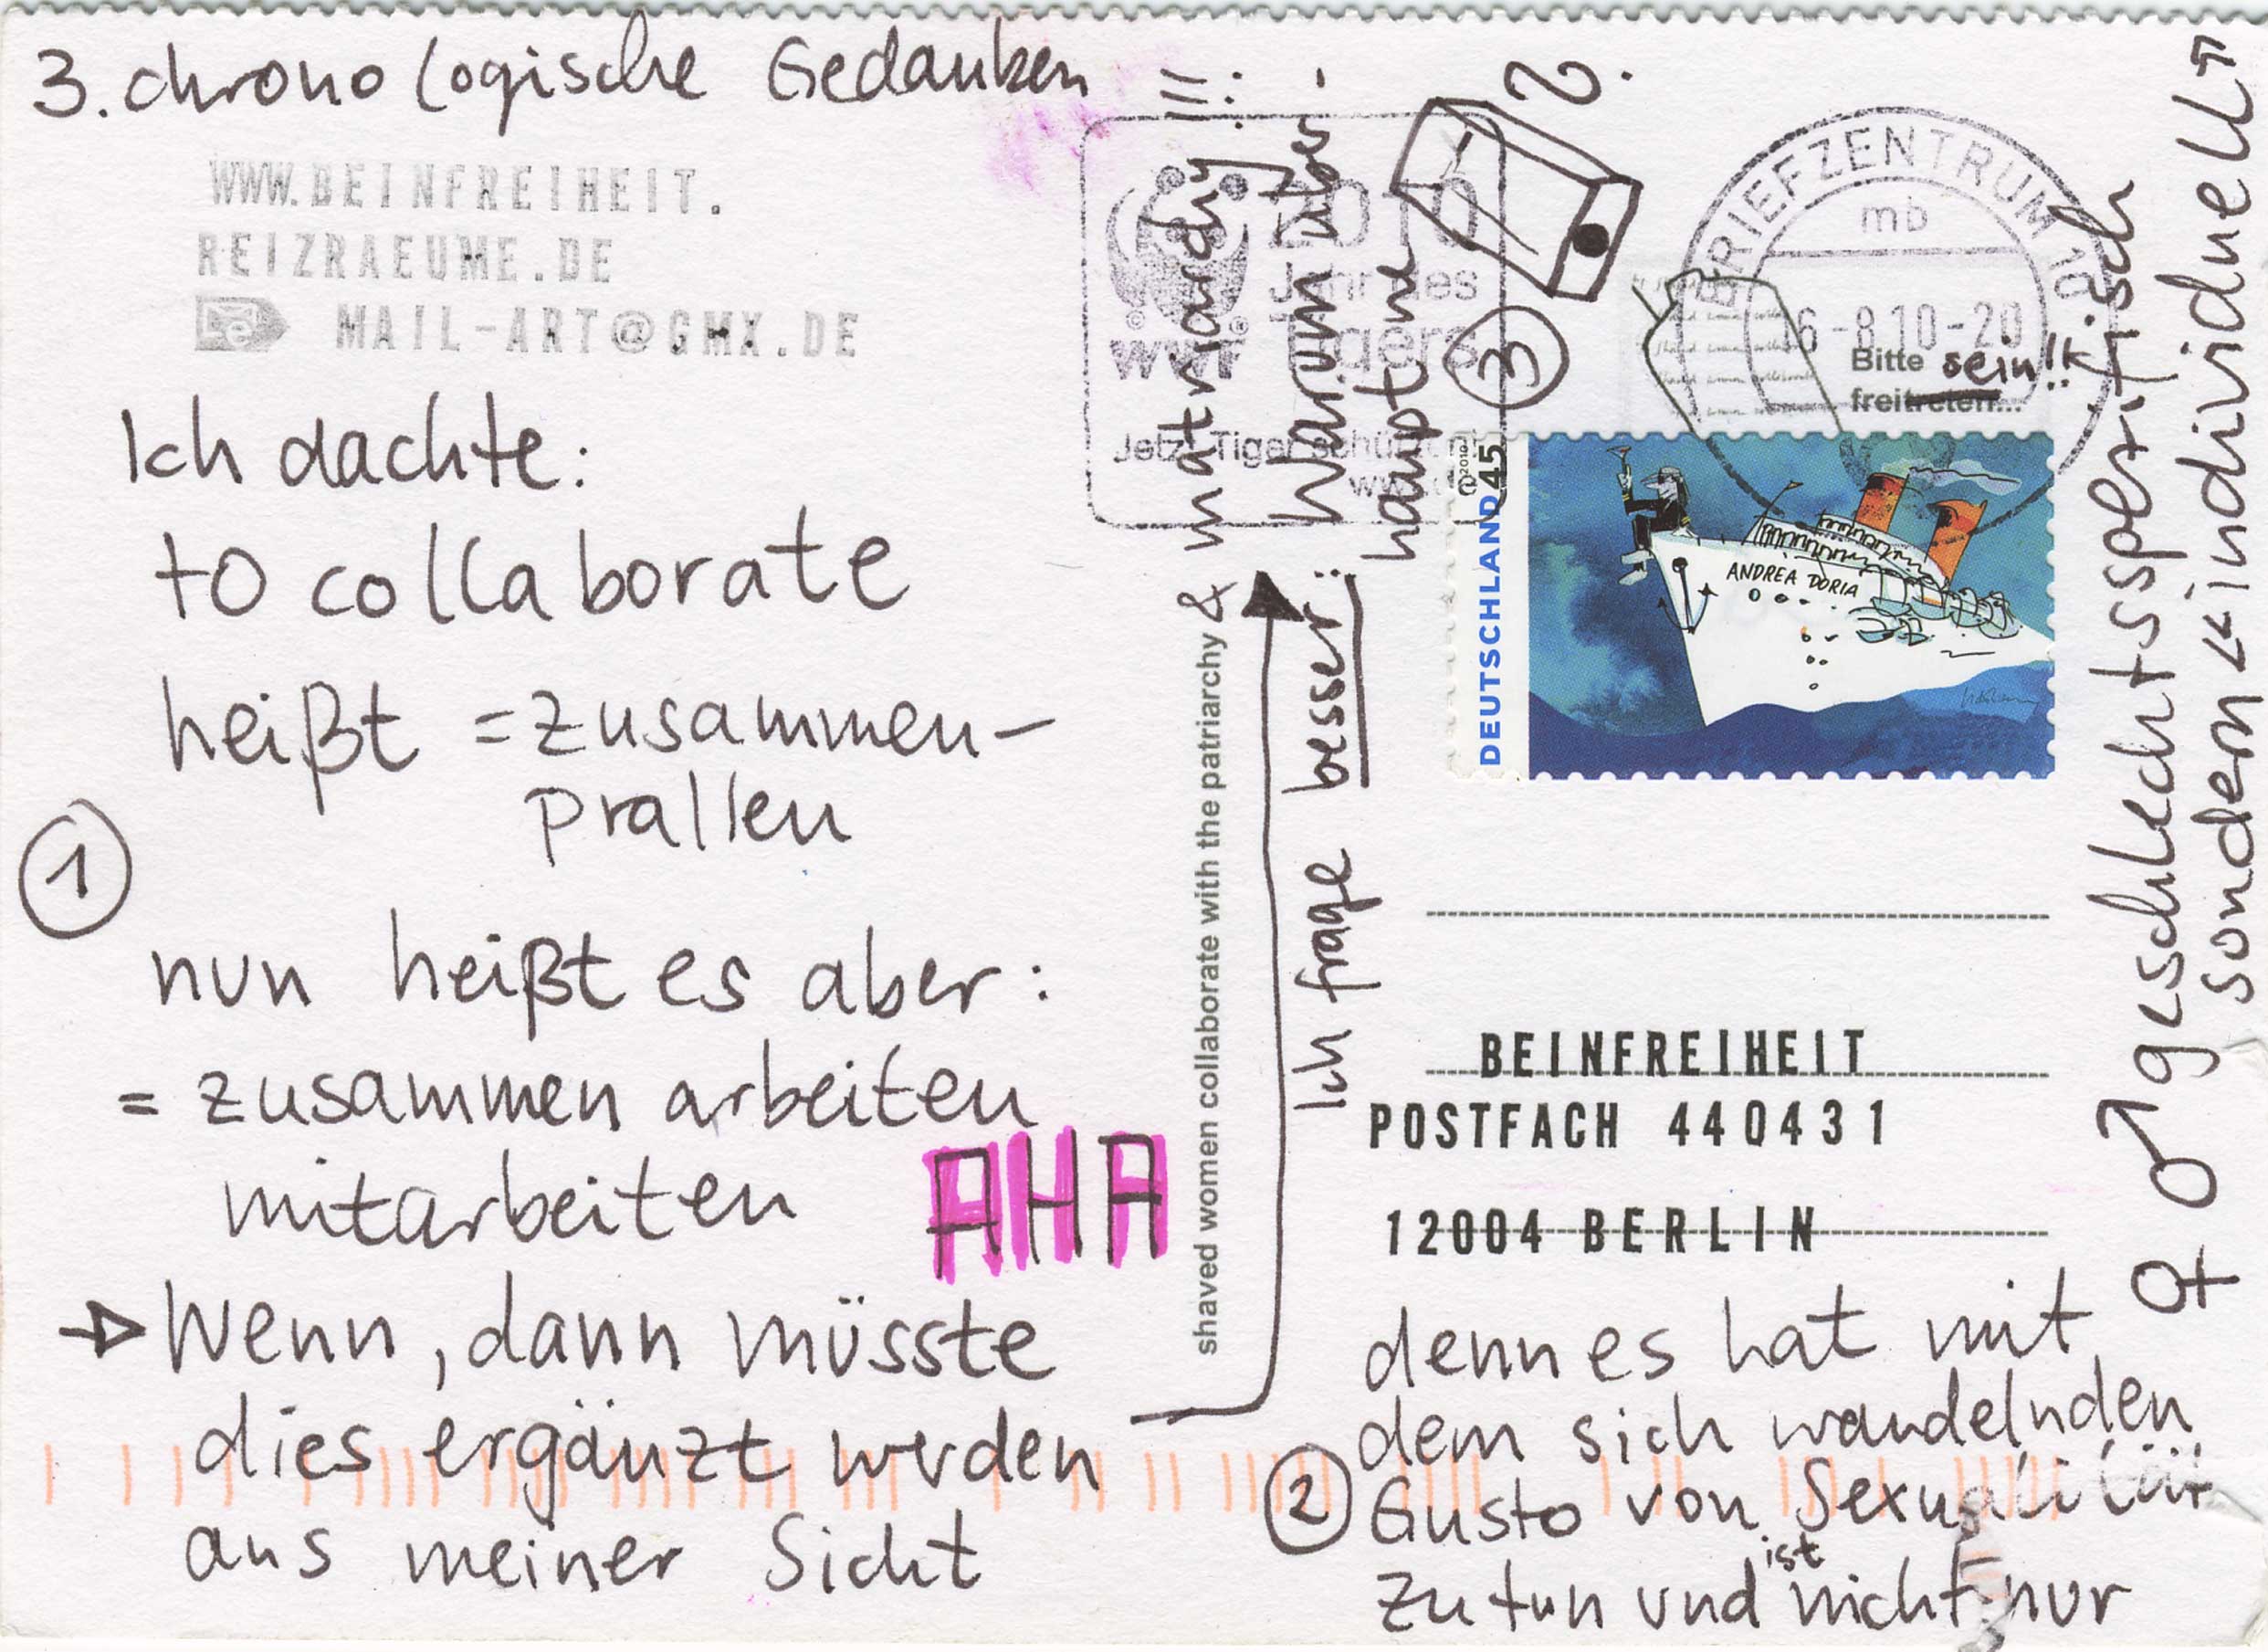 3. chronologische Gedanken
WWW.BEINFREIHEIT.
REIZRAEUME.DE
MAIL-ART@GMX.DE
Ich dachte:
to collaborate
heißt = zusammen-
prallen
1
nun heißt es aber:
= zusammen arbeiten
mitarbeiten
AHA
→ Wenn, dann müsste
dies ergänzt werden
aus meiner Sicht
shaved women collaborate with the patriarchy &
matriarchy !!
Ich frage besser:
Warum über-
haupt ne
?
3
2010
Jahr des
Tigers
WWF
Jetzt Tiger
BRIEFZENTRUM 10
mb
6-8.10-20
Bitte sein!!
freitreten...
DEUTSCHLAND 45
2010
ANDREA DORIA
BEINFREIHEIT
POSTFACH 440431
12004 BERLIN
2
denn es hat mit
dem sich wandelnden
Gusto von Sexualität
zu tun und ist nicht nur
♀ ♂ geschlechtsspezifisch
sondern "individuell"